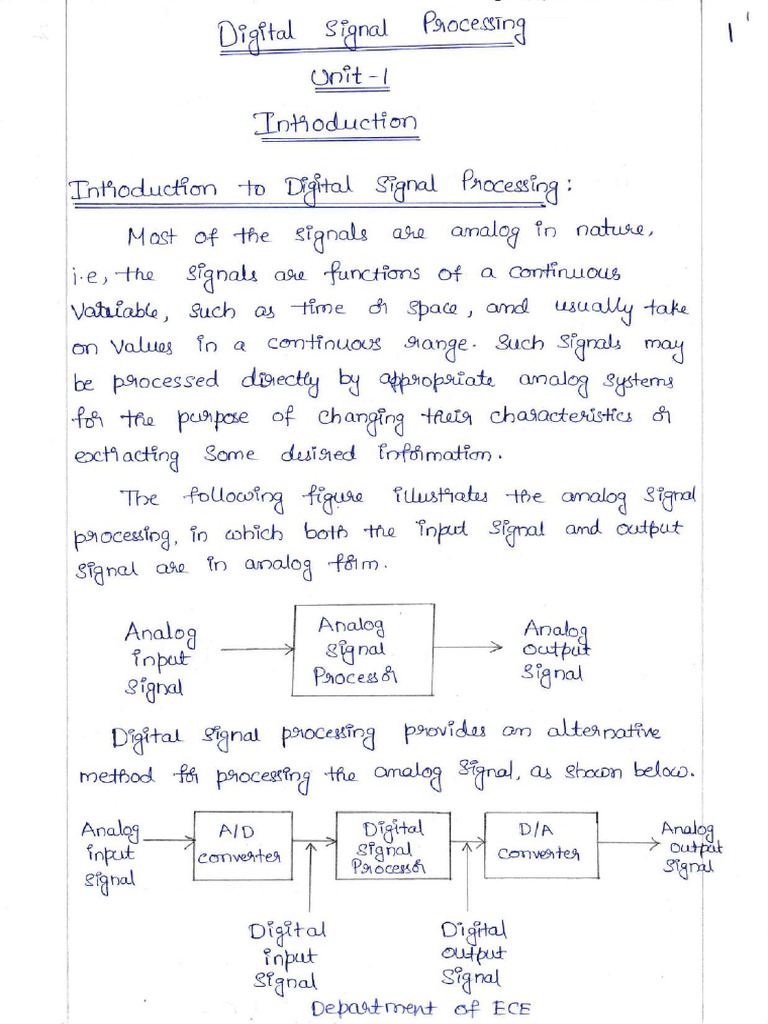 Digital Signal Processing
1
Unit-1
Introduction
Introduction to Digital Signal Processing:
Most of the signals are analog in nature,
i.e, the signals are functions of a continuous
Variable, such as time or space, and usually take
on values in a continuous range. Such signals may
be processed directly by appropriate analog systems
for the purpose of changing their characteristics or
extracting some desired information.
The following figure illustrates the analog signal
processing, in which both the input signal and output
signal are in analog form.
Analog
input
signal
Analog
Signal
Processor
Analog
output
signal
Digital signal processing provides an alternative
method for processing the analog signal, as shown below.
Analog
input
signal
A/D
converter
Digital
Signal
Processor
D/A
converter
Analog
output
signal
Digital
input
signal
Digital
output
signal
Department of ECE